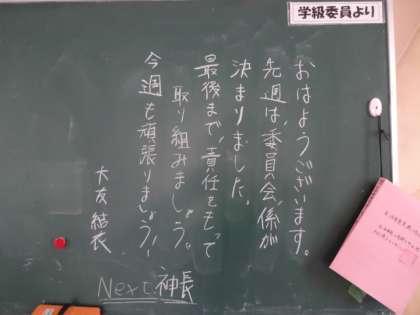 学級委員より
おはようございます。
先週は、委員会、係が
決まりました。
最後まで、責任をもって
取り組みましょう。
今週も頑張りましょう！
大友 結衣
Next 神長